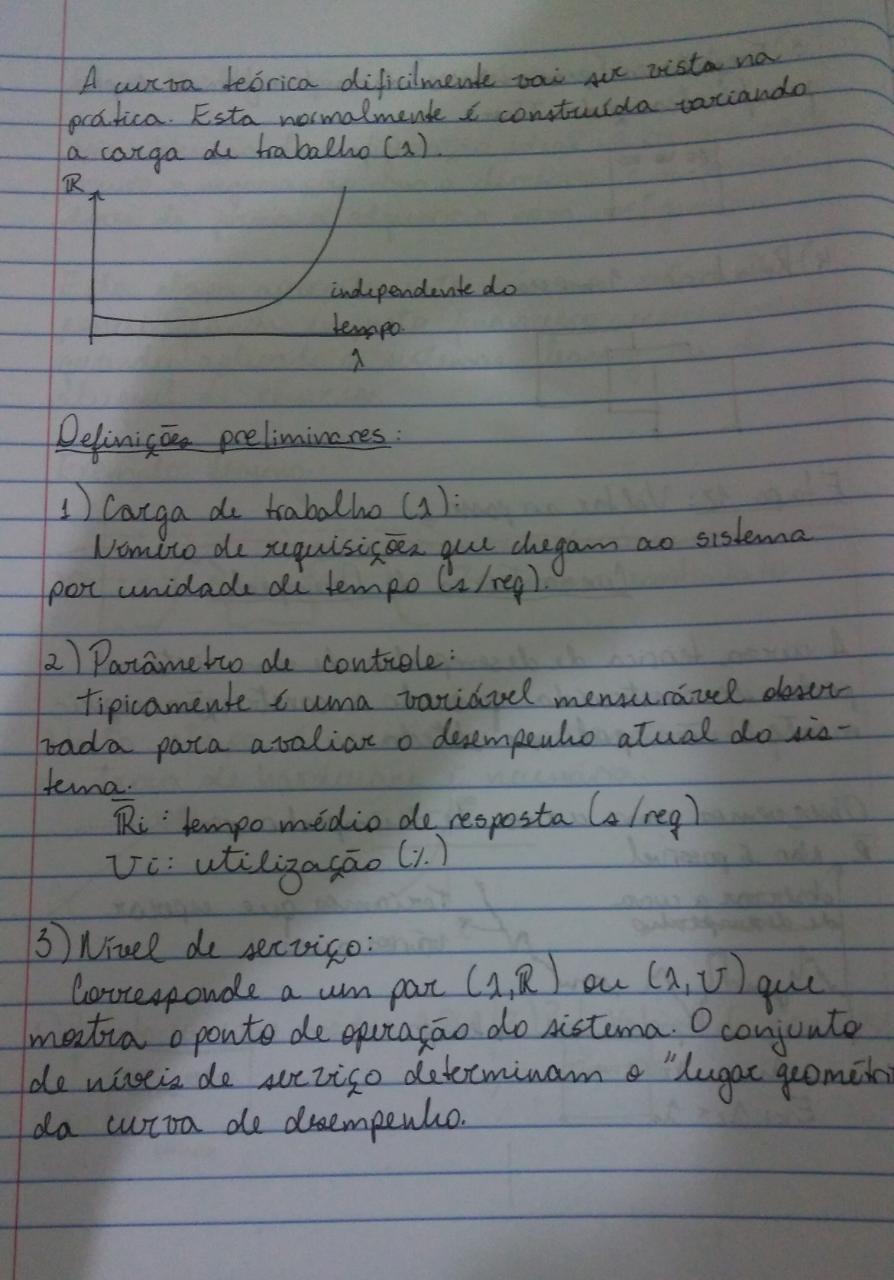 A curva teórica dificilmente vai ser vista na
prática. Esta normalmente é construída variando
a carga de trabalho (λ).
R
independente do
tempo.
λ
Definições preliminares:
1) Carga de trabalho (λ):
Número de requisições que chegam ao sistema
por unidade de tempo (s/req).
2) Parâmetro de controle:
Tipicamente é uma variável mensurável obser-
vada para avaliar o desempenho atual do sis-
tema.
R̄i: tempo médio de resposta (s/req)
Ui: utilização (%)
3) Nível de serviço:
Corresponde a um par (λ,R) ou (λ,U) que
mostra o ponto de operação do sistema. O conjunto
de níveis de serviço determinam o "lugar geométri
da curva de desempenho.